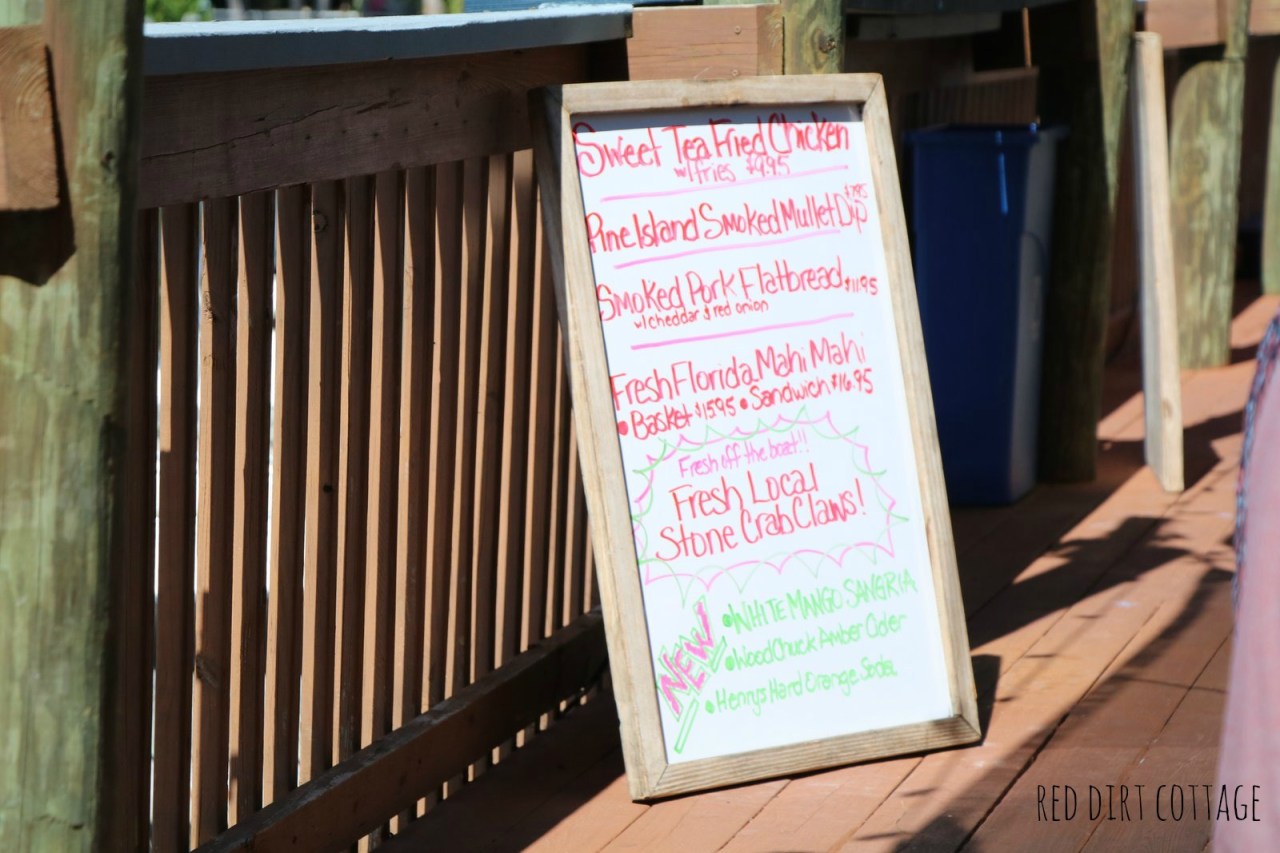 Sweet Tea Fried Chicken
w/fries $9.95
$7.95
Pine Island Smoked Mullet Dip
Smoked Pork Flatbread $11.95
w/cheddar & red onion
Fresh Florida Mahi Mahi
• Basket $15.95 • Sandwich $16.95
Fresh off the boat!!
Fresh Local
Stone Crab Claws!
NEW!
• WHITE MANGO SANGRIA
• WoodChuck Amber Cider
• Henrys Hard Orange Soda
RED DIRT COTTAGE